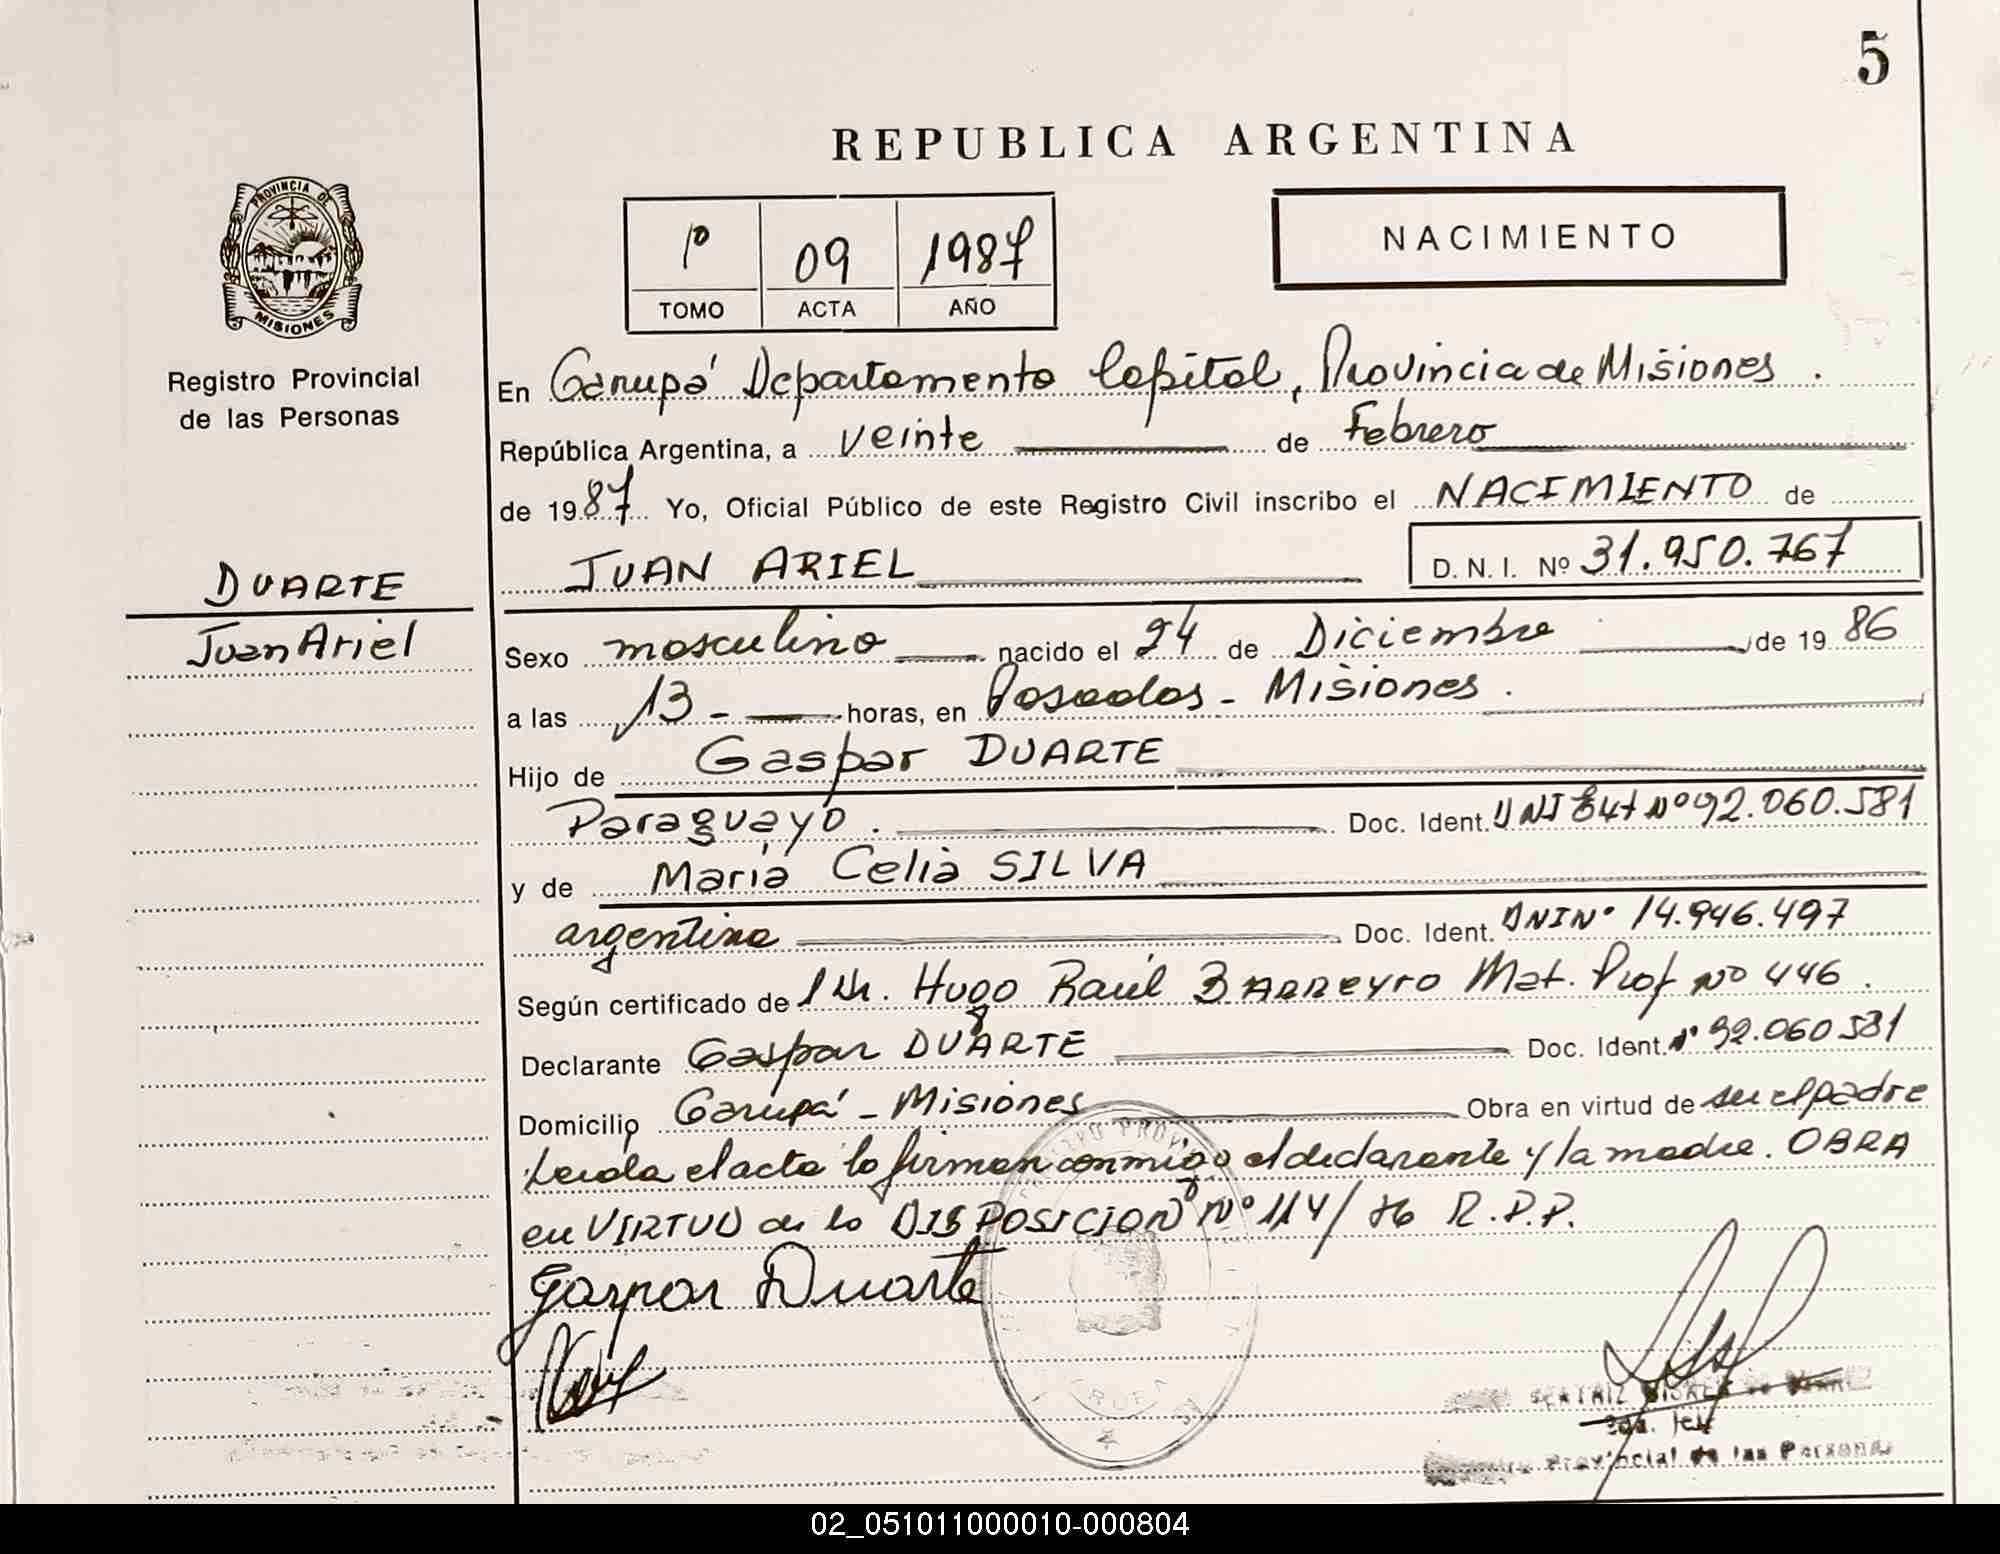 5
REPUBLICA ARGENTINA
PROVINCIA DE
MISIONES
Registro Provincial
de las Personas
1º 09 1987
TOMO ACTA AÑO
NACIMIENTO
En Garupá Departamento Capital, Provincia de Misiones.
República Argentina, a veinte de Febrero
de 1987 Yo, Oficial Público de este Registro Civil inscribo el NACIMIENTO de
DUARTE
Juan Ariel
JUAN ARIEL D. N. I. Nº 31.950.767
Sexo masculino nacido el 24 de Diciembre de 1986
a las 13 - horas, en Posadas - Misiones.
Hijo de Gaspar DUARTE
Paraguayo. Doc. Ident. Nº 92.060.581
y de María Celia SILVA
argentina Doc. Ident. DNI Nº 14.946.497
Según certificado de Dr. Hugo Raúl BARREYRO Mat. Prof Nº 446.
Declarante Gaspar DUARTE Doc. Ident. Nº 92.060581
Domicilio Garupá - Misiones Obra en virtud de ser el padre
Leída el acta lo firman conmigo el declarante y la madre. OBRA
en VIRTUD de la DISPOSICION Nº 114/76 R.P.P.
Gaspar Duarte
BEATRIZ
Provincial de las Personas
02_051011000010-000804